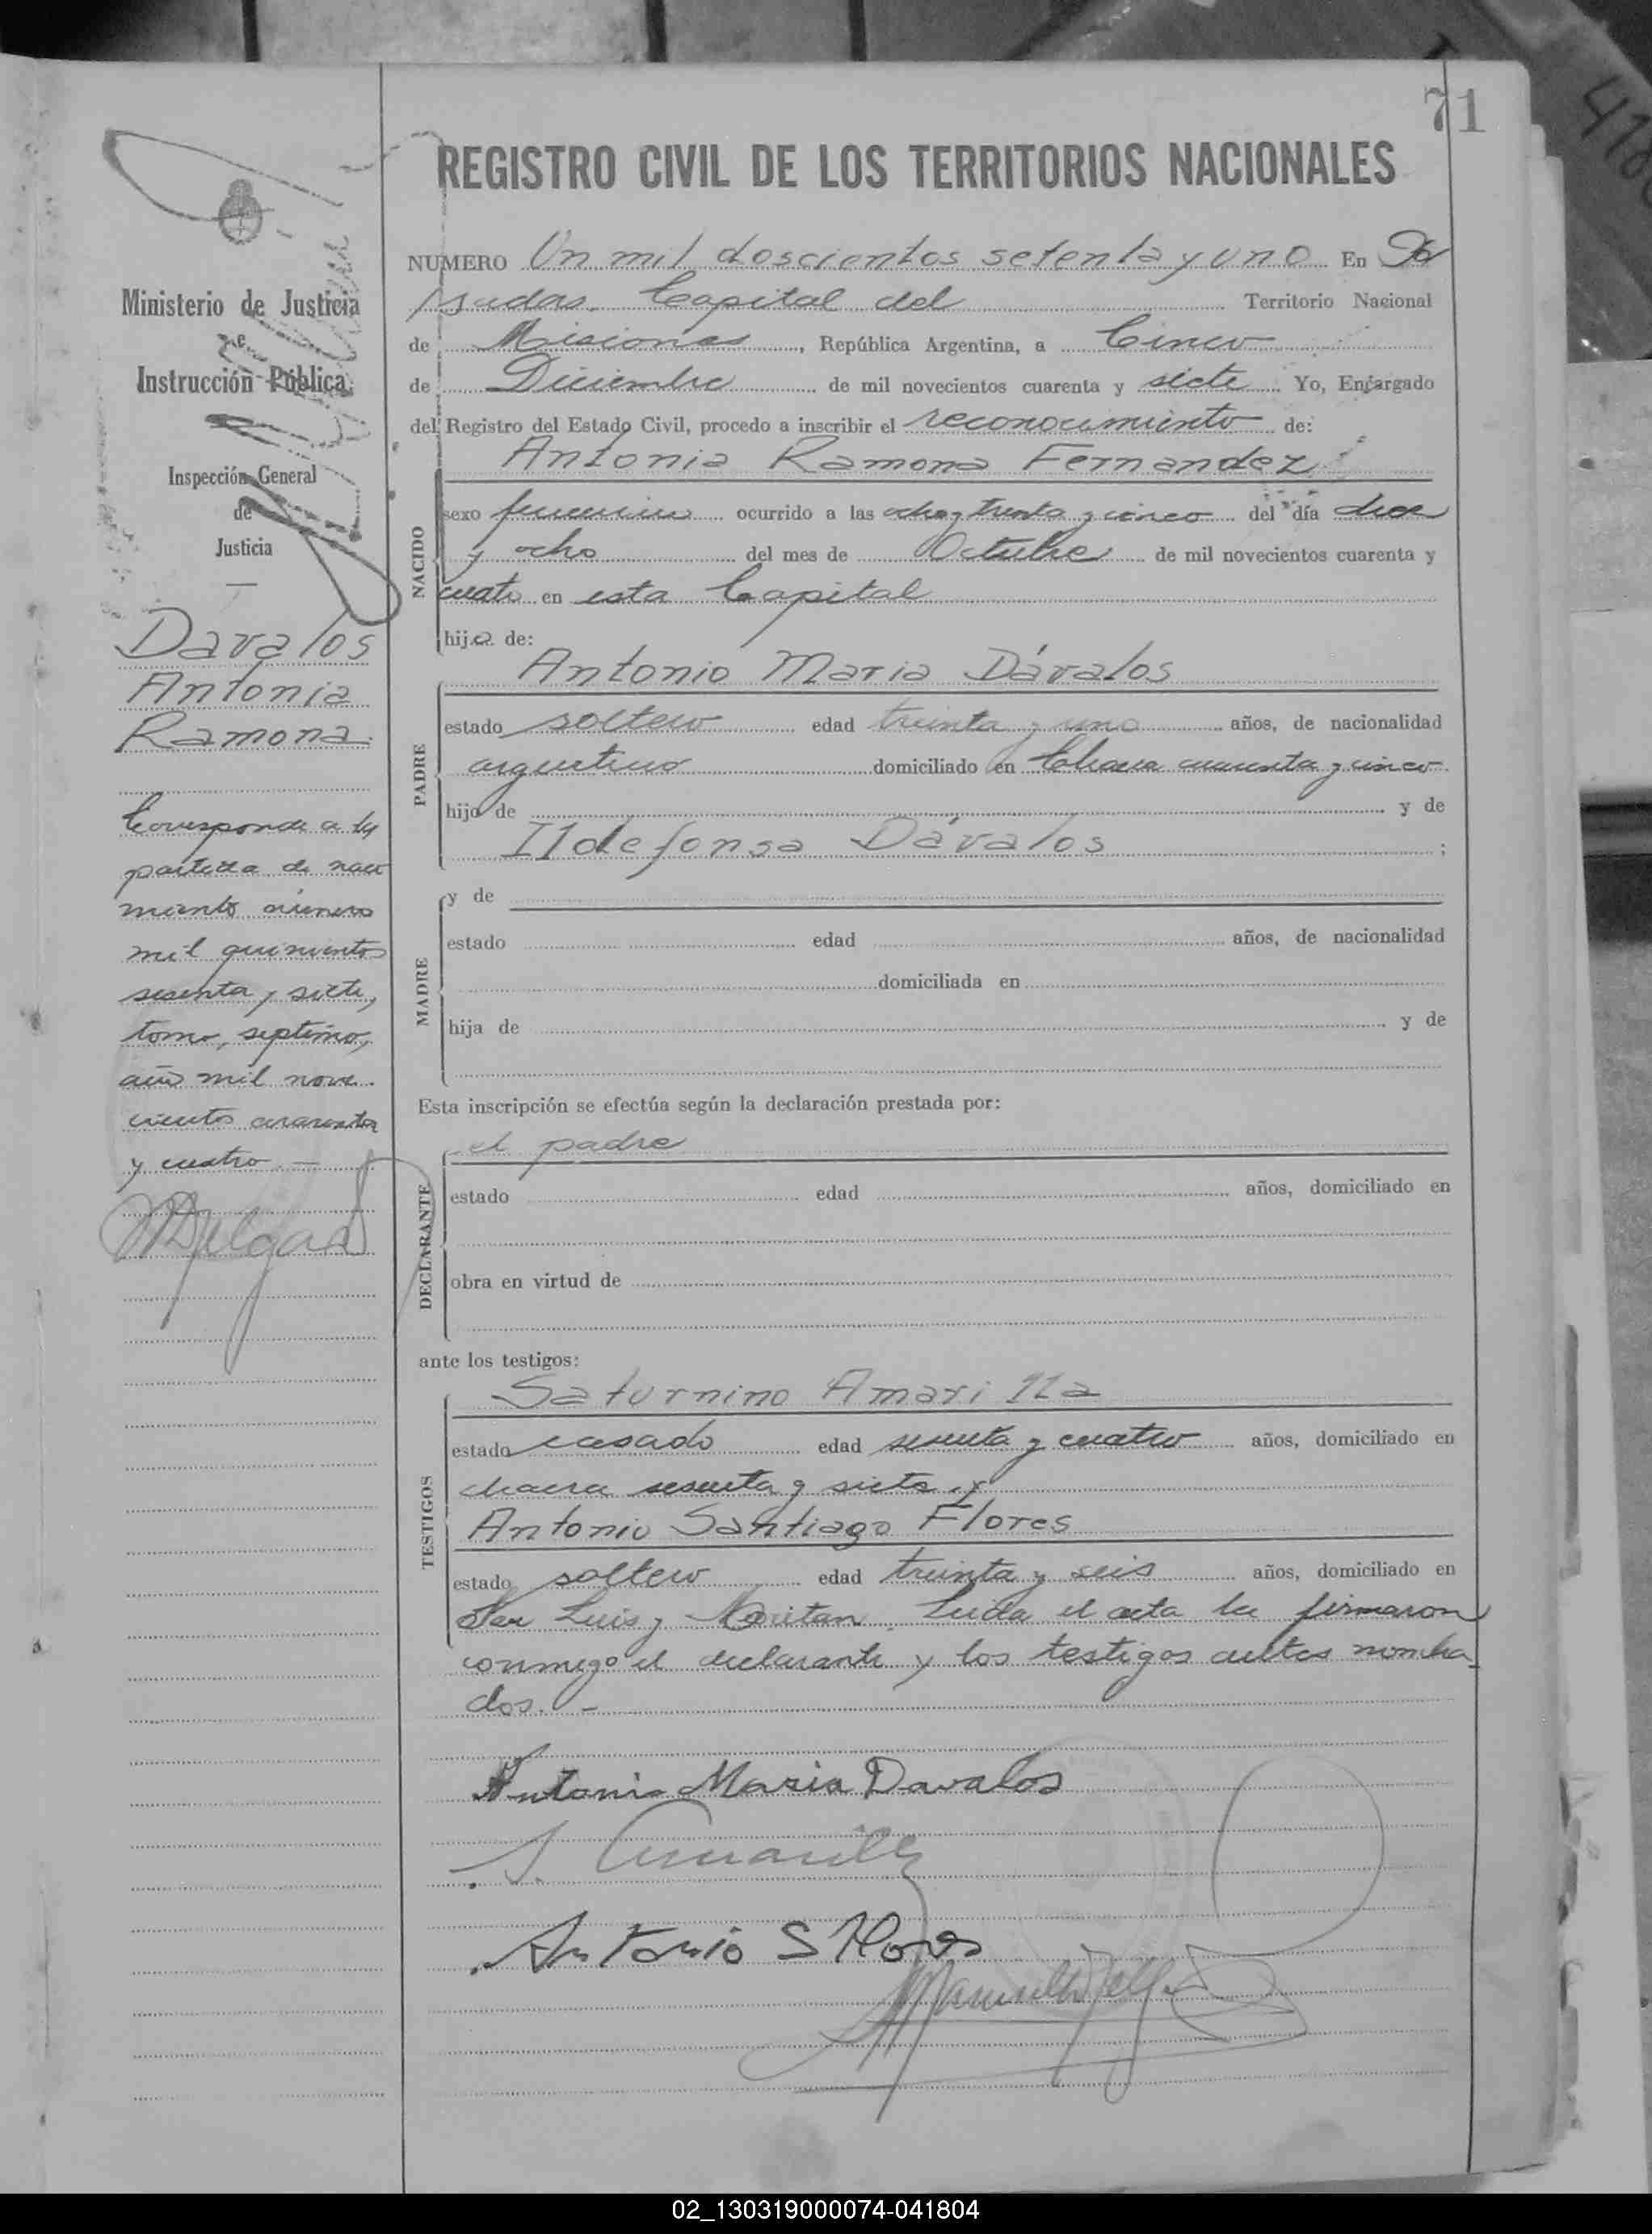 71
REGISTRO CIVIL DE LOS TERRITORIOS NACIONALES
Ministerio de Justicia
e
Instrucción Pública
Inspección General
de
Justicia
Davalos
Antonia
Ramona
Corresponde a la
partida de naci
miento número
mil quinientos
sesenta y siete,
tomo, septimo,
año mil nove-
cientos cuarenta
y cuatro. —
NUMERO Un mil doscientos setenta y uno En Po
sadas. Capital del Territorio Nacional
de Misiones, República Argentina, a Cinco
de Diciembre de mil novecientos cuarenta y siete Yo, Encargado
del Registro del Estado Civil, procedo a inscribir el reconocimiento de:
Antonia Ramona Fernandez
NACIDO
sexo femenino ocurrido a las ocho y treinta y cinco del día diez
y ocho del mes de Octubre de mil novecientos cuarenta y
cuatro en esta Capital
hija de:
Antonio Maria Dávalos
PADRE
estado soltero edad treinta y uno años, de nacionalidad
argentino domiciliado en Chacra cuarenta y cinco
hijo de y de
Ildefonsa Dávalos ;
MADRE
y de
estado edad años, de nacionalidad
domiciliada en
hija de y de
Esta inscripción se efectúa según la declaración prestada por:
el padre
DECLARANTE
estado edad años, domiciliado en
obra en virtud de
ante los testigos:
Saturnino Amarilla
TESTIGOS
estado casado edad y cuatro años, domiciliado en
chacra sesenta y siete y
Antonio Santiago Flores
estado soltero edad treinta y seis años, domiciliado en
San Luis y Leida el acta la firmaron
conmigo el declarante y los testigos antes nombra-
dos. -
Antonio Maria Davalos
S. Amarilla
Antonio S Flores
02_130319000074-041804